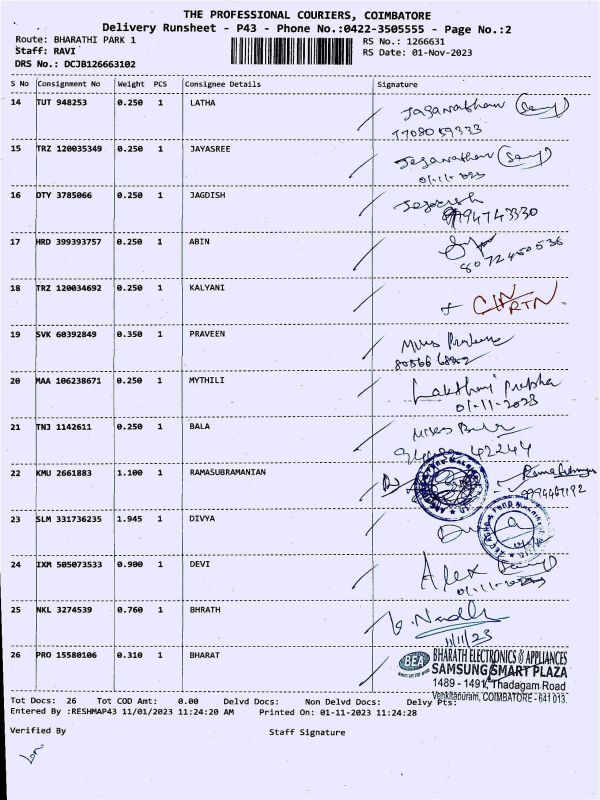 THE PROFESSIONAL COURIERS, COIMBATORE
Delivery Runsheet - P43 - Phone No.:0422-3505555 - Page No.:2
Route: BHARATHI PARK 1 RS No.: 1266631
Staff: RAVI RS Date: 01-Nov-2023
DRS No.: DCJB126663102
S No Consignment No Weight PCS Consignee Details Signature
14 TUT 948253 0.250 1 LATHA Jaganathan
7708059333
15 TRZ 120035349 0.250 1 JAYASREE Jeganathan
01-11-2023
16 DTY 3785066 0.250 1 JAGDISH
9994743330
17 HRD 399393757 0.250 1 ABIN
8072450536
18 TRZ 120034692 0.250 1 KALYANI
RTN
19 SVK 60392849 0.350 1 PRAVEEN
20 MAA 106238671 0.250 1 MYTHILI Lakshmi Prabha
01-11-2023
21 TNJ 1142611 0.250 1 BALA
42244
22 KMU 2661883 1.100 1 RAMASUBRAMANIAN
23 SLM 331736235 1.945 1 DIVYA
24 IXM 505073533 0.900 1 DEVI Alex
01-11-2023
25 NKL 3274539 0.760 1 BHRATH
1/11/23
26 PRO 15580106 0.310 1 BHARAT BEA BHARATH ELECTRONICS & APPLIANCES
SAMSUNG SMART PLAZA
1489 - 1491, Thadagam Road
Venkitapuram, COIMBATORE - 641 013.
Tot Docs: 26 Tot COD Amt: 0.00 Delvd Docs: Non Delvd Docs: Delvy Pts:
Entered By :RESHMAP43 11/01/2023 11:24:20 AM Printed On: 01-11-2023 11:24:28
Verified By Staff Signature